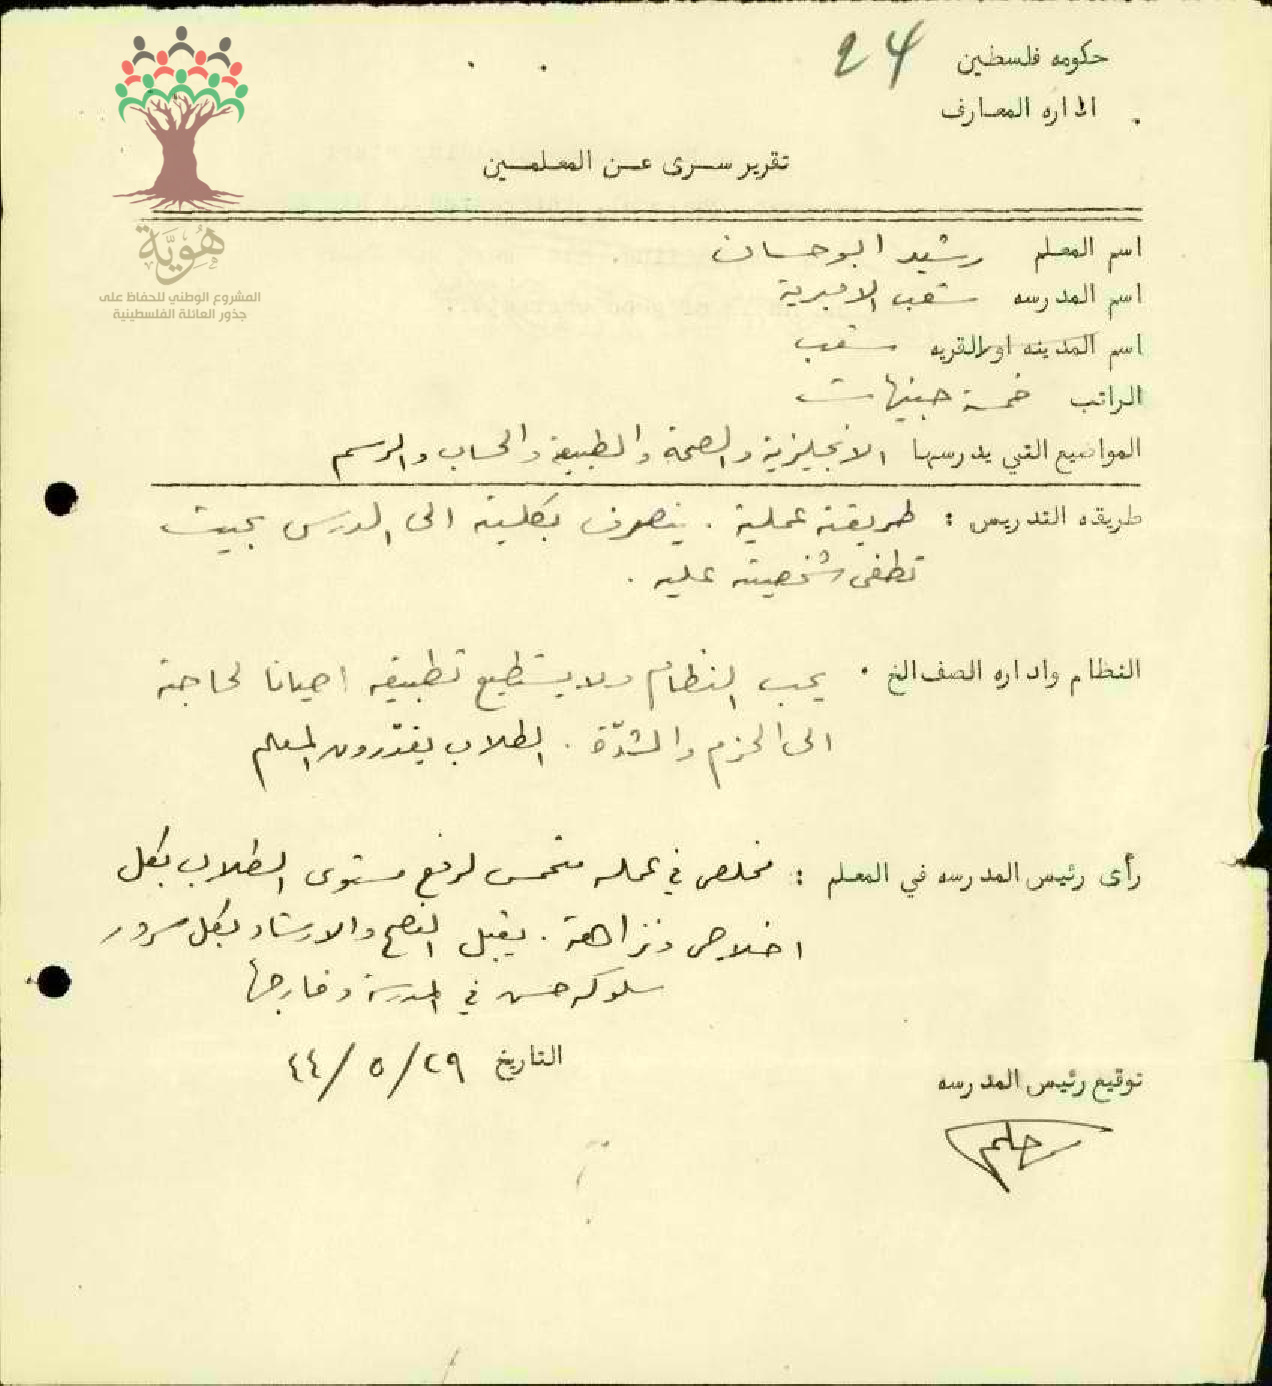 حكومه فلسطين 24
اداره المعارف
تقرير سرى عن المعلمين
هُوِيَّة
المشروع الوطني للحفاظ على
جذور العائلة الفلسطينية
اسم المعلم رشيد ابو حسان
اسم المدرسه شعب الاميرية
اسم المدينه او القريه شعب
الراتب خمسة جنيهات
المواضيع التي يدرسها الانجليزية والصحة والطبيعة والحساب والرسم
طريقه التدريس : طريقته عملية . ينصرف بكليته الى الدرس بحيث
تطغى شخصيته عليه .
النظام واداره الصف الخ . يحب النظام ولا يستطيع تطبيقه احيانا لحاجته
الى الحزم والشدّة . الطلاب يقدّرون المعلم
رأى رئيس المدرسه في المعلم : مخلص في عمله متحمس لرفع مستوى الطلاب بكل
اخلاص ونزاهة . يقبل النصح والارشاد بكل سرور
سلوكه حسن في المدرسة وخارجها
التاريخ ٢٩/٥/٤٤
توقيع رئيس المدرسه